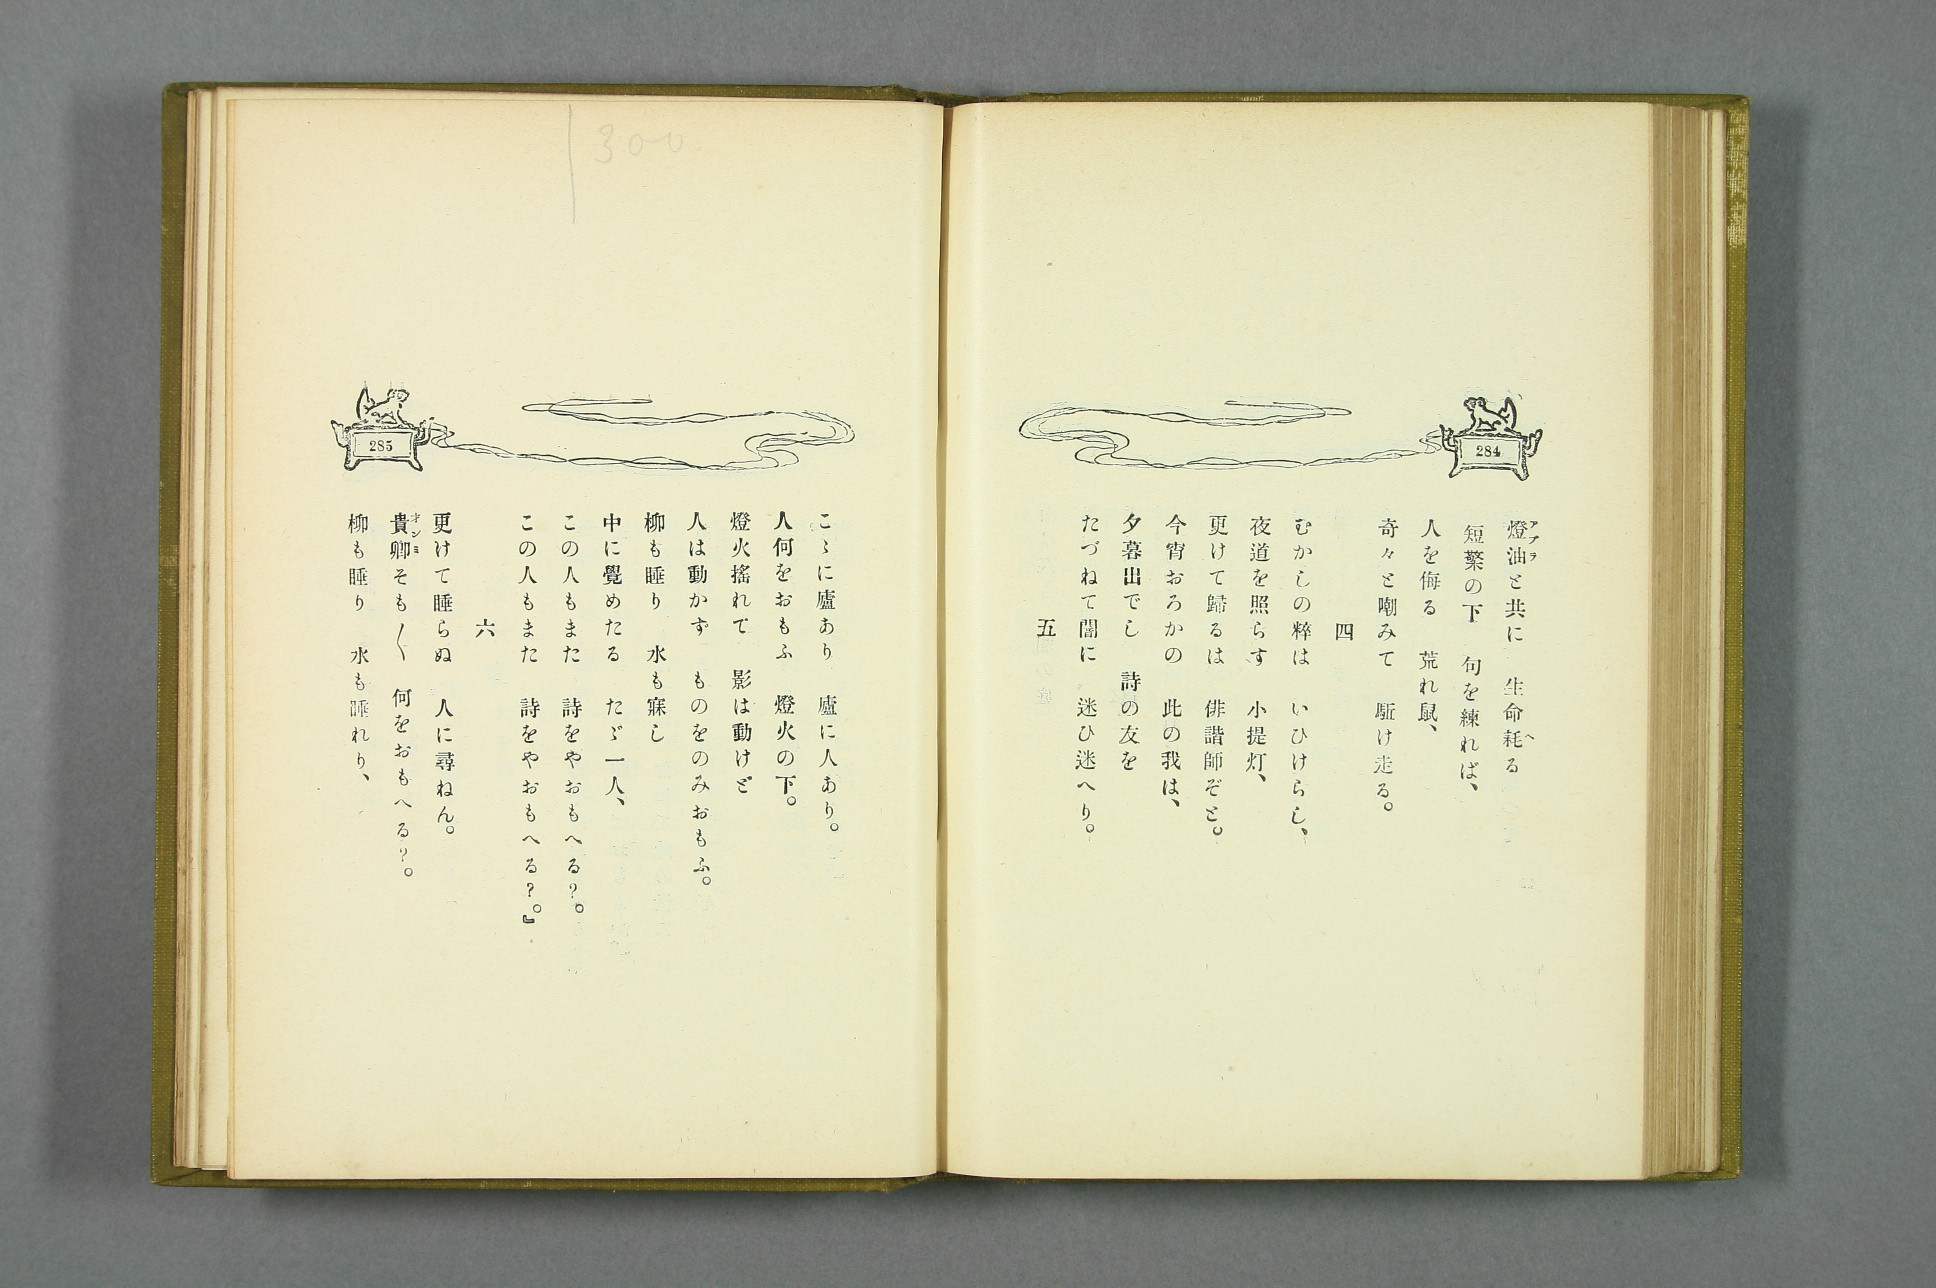 284
燈油と共に　生命耗る
アブラ
へ
短檠の下　句を練れば、
人を侮る　荒れ鼠、
奇々と嘲みて　駈け走る。
四
むかしの粹は　いひけらし、
夜道を照らす　小提灯、
更けて歸るは　俳諧師ぞと。
今宵おろかの　此の我は、
夕暮出でし　詩の友を
たづねて闇に　迷ひ迷へり。
五
300
285
こゝに廬あり　廬に人あり。
人何をおもふ　燈火の下。
燈火搖れて　影は動けど
人は動かず　ものをのみおもふ。
柳も睡り　水も寐し
中に覺めたる　たゞ一人、
この人もまた　詩をやおもへる?。
この人もまた　詩をやおもへる?。』
六
更けて睡らぬ　人に尋ねん。
貴卿そも〱　何をおもへる?。
オンミ
柳も睡り　水も睡れり、